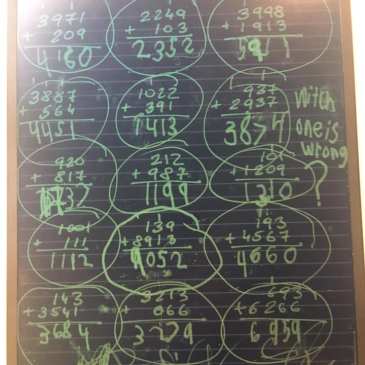 3971 2249 3998
+ 209 + 103 + 1913
4160 2352
3887 1022 937
+ 564 + 391 + 2937
4451 1413 3874
Witch
one is
wrong
?
920 212 101
+ 817 + 987 + 1209
1737 1199 1310
1001 139 193
+ 111 +8913 +4567
1112 9052 4660
143 3213 693
+3541 + 066 +6266
3684 3279 6959